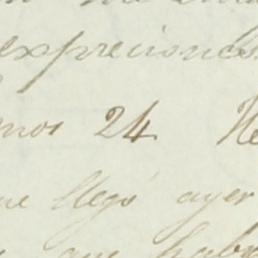 expreciones
mos 24. He
ue llegó ayer
que habr